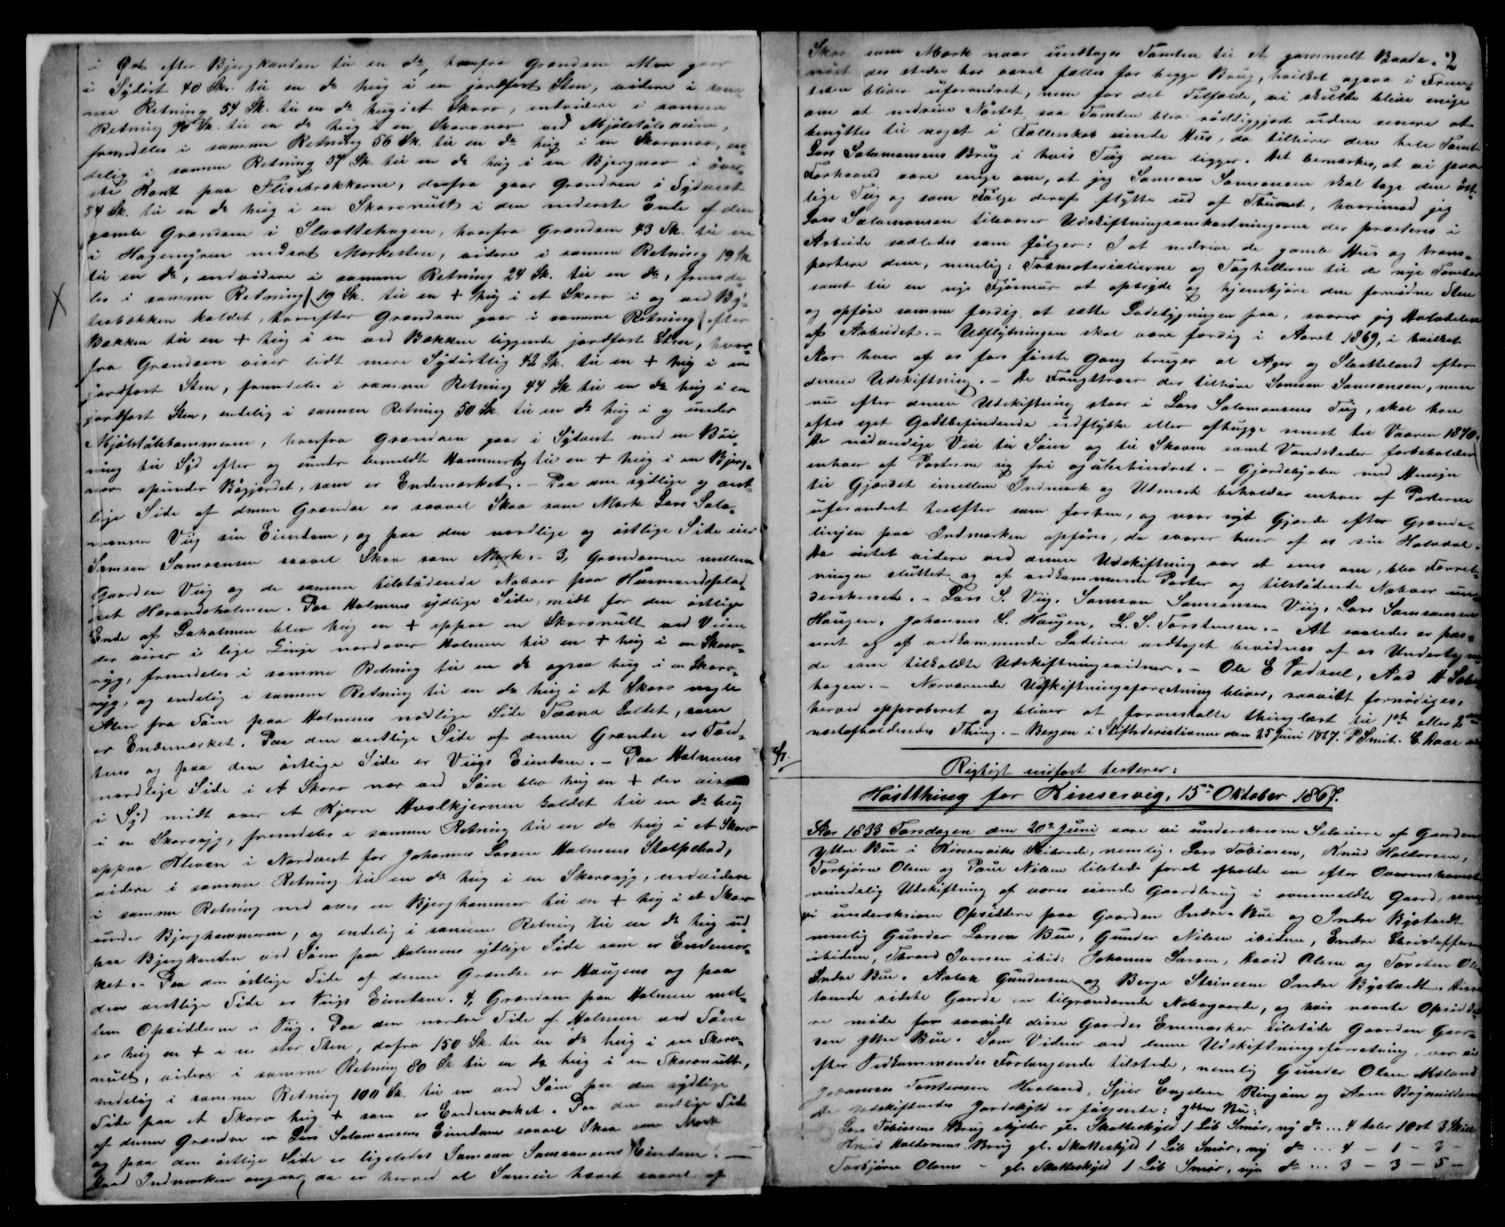 i Øst efter Bjergkanten til en do, herfra Grændsen atter gaar
i Sydost 40 Sk. til en do hug i en jordfast Sten, videre i sam-
me Retning 54 Sk. til en do hug i et Skorv, endvidere i samme
Retning 90 Sk. til en do hug i en Skorvnov ved Mjølstølsveien,
fremdeles i samme Retning 56 Sk. til en do hug i en Skorvnov, en-
delig i samme Retning 57 Sk. til en do hug i en Bjergnov i øver-
ste Kant paa Flisebrækkerne, derfra gaar Grændsen i Sydvest
54 Sk. til en do hug i en Skorvnult i den nederste Ende af den
gamle Grændse i Slaattehagen, herfra Grændsen 43 Sk. til en
i Hagemyren nedsat Merkesten, videre i samme Retning 19 Sk.
til en do, endvidere i samme Retning 24 Sk. til en do, fremde-
les i samme Retning 19 Sk. til en + hug i et Skorv i og ved By-
bækken kaldet, hvorefter Grændsen gaar i samme Retning efter
Bækken til en + hug i en ved Bækken liggende jordfast Sten, hvor-
fra Grændsen viser lidt mere Sydostlig 42 Sk. til en + hug i en
jordfast Sten, fremdeles i samme Retning 44 Sk. til en do hug i en
jordfast Sten, endelig i samme Retning 50 Sk. til en do hug i og under
Mjølstølshammeren, herfra Grændsen gaar i Sydvest med en Bøi-
ning til Syd efter og under bemeldte Hammerberg til en + hug i en Bjerg-
nov ovenfor Bøgjerdet, som er Endemærket. – Paa den sydlige og vest-
lige Side af denne Grændse er saavel Skov som Mark Lars Salo-
monsen Viig sin Eiendom, og paa den nordlige og østlige Side eier
Samson Samsonsen saavel Skov som Mark. – 3, Grændserne mellem
Gaarden Viig og de samme tilstødende Naboer paa Huusmandsplad-
set Haarandsholmen. Paa Holmens sydlige Side, midt for den østlige
Ende af Laxholmen blev hug en + oppaa en Skorvnult ved Veien
der viser i lige Linje nordover Holmen til en + hug i en Skorv-
ryg, fremdeles i samme Retning til en do ogsaa hug i en Skorv-
ryg, og endelig i samme Retning til en do hug i et Skorv nogle
Alen fra Søen paa Holmens nordlige Side Taana kaldet, som
er Endemærket. Paa den vestlige Side af denne Grændse er Tors-
tens og paa den østlige Side er Viigs Eiendom. – Paa Holmens
nordlige Side i et Skorv nær ved Søen blev hug en + der viser
i Syd midt over et Kjern Hvalkjernen kaldet til en do hug
i en Skorvryg, fremdeles i samme Retning til en do hug i et Skorv
oppaa Kleven i Nordvest for Johannes Larsen Holmens Stolpebod,
videre i samme Retning til en do hug i en Skorvryg, endvidere
i samme Retning ned over en Bjerghammer til en + hug i et Skorv
under Bjerghammeren, og endelig i samme Retning til en do hug ud
paa Bjergkanten ved Søen paa Holmens sydlige Side som er Endemær-
ket. – Paa den østlige Side af denne Grændse er Haugens og paa
den vestlige Side er Viigs Eiendom. 4, Grændsen paa Holmen mel-
lem Opsidderne i Viig. Paa den nordre Side af Holmen ved Søen
er hug en + i en stor Sten, derfra 150 Sk. til en do hug i en Skorv-
nult, videre i samme Retning 80 Sk. til en do hug i en Skorvnult,
endelig i samme Retning 100 Sk. til en ved Søen paa den sydlige
Side paa et Skorv hug + som er Endemærket. Paa den vestlige Side
af denne Grændse er Lars Salomonsens Eiendom saavel Skov som Mark
og paa den østlige Side er ligeledes Samson Samsonsens Eiendom. –
Hvad Indmarken angaar, da er herved at Samson havt saavel af
2
Skov som Mark naar undtages Tomten til et gammelt Baade-
nøst der stedse har været fælles for begge Brug, hvilket ogsaa i Frem-
tiden bliver uforandret, men for det Tilfælde, vi skulde blive enige
om at nedrive Nøstet saa Tomten blev ryddiggjort uden senere at
benyttes til noget i Fællesskab eiende Huus, da tilhører den hele Tomt
Lars Salomonsens Brug i hvis Teig den ligger. Det bemærkes, at vi paa
Forhaand vare enige om, at jeg Samson Samsonsen skal tage den øst-
lige Teig og som Følge deraf flytte ud af Thunet, hvorimod jeg
Lars Salomonsen tilsvarer Udskiftningsomkostningerne der præsteres i
Arbeide saaledes som følger: I at nedrive de gamle Huse og trans-
portere dem, nemlig: Træmaterialierne og Taghellerne til de nye Tomter
samt til en nye Fjøsmuur at opbryde og hjemkjøre den fornødne Steen
og opføre samme færdig at sætte Ladebygningen paa, svarer jeg Halvdelen
af Arbeidet. – Udflytningen skal være færdig i Aaret 1869, i hvilket
Aar hver af os for første Gang bruger al Ager og Slaatteland efter
denne Udskiftning. – De Frugttræer der tilhøre Samson Samsonsen, men
nu efter denne Udskiftning staar i Lars Salomonsens Teig, skal han
efter eget Godtbefindende udflytte eller afhugge inden til Vaaren 1870.
De nødvendige Veie til Søen og til Skoven samt Vandsteder forbeholder
enhver af Parterne sig fri og uforhindret. – Gjerdepligten med Hensyn
til Gjerdet imellem Indmark og Udmark beholder enhver af Parterne
uforandret herefter som forhen, og naar nyt Gjerde efter Grændse-
linjen paa Indmarken opføres, da svarer hver af os sin Halvdel.
Da intet videre ved denne Udskiftning var at enes om, blev Forret-
ningen sluttet og af vedkommende Parter og tilstødende Naboer un-
derskrevet. – Lars S. Viig. Samson Samsonsen Viig. Lars Samsonsen
Haugen. Johannes S. Haugen. L. S. Torstensen. – At saaledes er pas-
seret og af vedkommende Lodeiere vedtaget bevidnes af os Undertegne-
de som tilkaldte Udskiftningsvidner. – Ole E Vadsel, Aad H
hagen. – Nærværende Udskiftningsforretning bliver, saavidt fornødiges,
herved approberet og bliver at foranstalte thinglæst til 1ste eller 2det
næstafholdendes Thing. – Bergen i Stiftsdirektionen den 25 Juni 1867. P Smit. E Daae
Rigtigt indført testerer:
Høstthing for Kinservig, 15de Oktober 1867.
Aar 1833 Torsdagen den 20de Juni vare vi underskrevne Selveiere af Gaarden
Ytre Bue i Kinserviks Skibrede, nemlig: Lars Tobiasen, Knud Haldorsen,
Torbjørn Olsen og Poul Nilsen tilstede foret afholde en efter Overenskomst
mindelig Udskiftning af vores eiende Gaardbrug i ovenmeldte Gaard, samt
vi underskrevne Opsiddere paa Gaarden Indre-Bue og Indre Bystadt
nemlig Gunder Larsen Bue, Gunder Nilsen ibidem, Endre Christoffersen
ibidem, Thrond Iversen ibid: Johannes Larsen, David Olsen og Torsten Olsen
Indre Bue. Aslak Gundersen og Berge Steinesen Indre Bystadt. Hvis
lande sidste Gaarde er tilgrændsende Nabogaarde, og hvis nævnte Opsidde-
re møde for saavidt disse Gaardes Enemærker tilstøde Gaarden Gaar-
den Ytre Bue. Som Vidner ved denne Udskiftningsforretning, var vi
efter Vedkommendes Forlangende tilstede, nemlig Gunder Olsen Mæland
Johannes Torstensen Hovland, Sjur Engelsen Ringøen og Aamund
De udskiftendes Jordskyld er følgende: Ytre Bu:
Lars Tobiasens Brug skylder gl. Skatteskyld 1 Løb Smør, ny do ... 4 Daler 1 Ort 3 Skill
Knud Haldorsens Brug gl. Skatteskyld 1 Løb Smør, ny do ... 4 – 1 – 3 –
Torbjørn Olsens – gl. Skatteskyld 1 Løb Smør, nye do ... 3 – 3 – 5 –